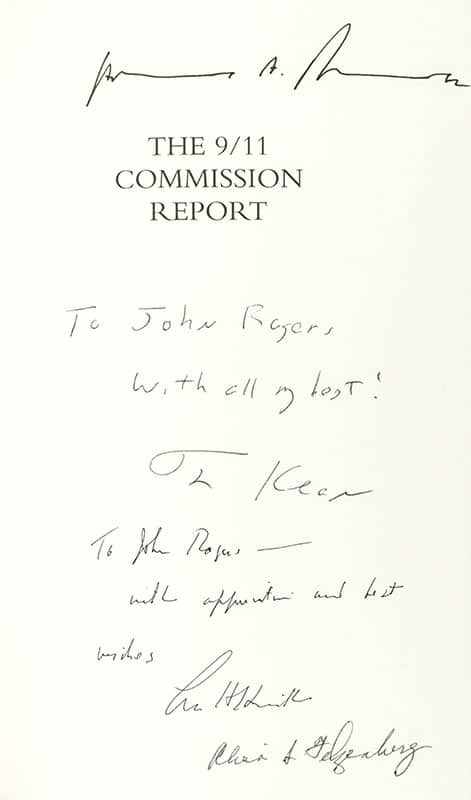 A.
THE 9/11
COMMISSION
REPORT
To John Rogers,
With all my best!
Tom Kean
To John Rogers —
with appreciation and best
wishes
Lee H Hamilton
Alvin S Felzenberg